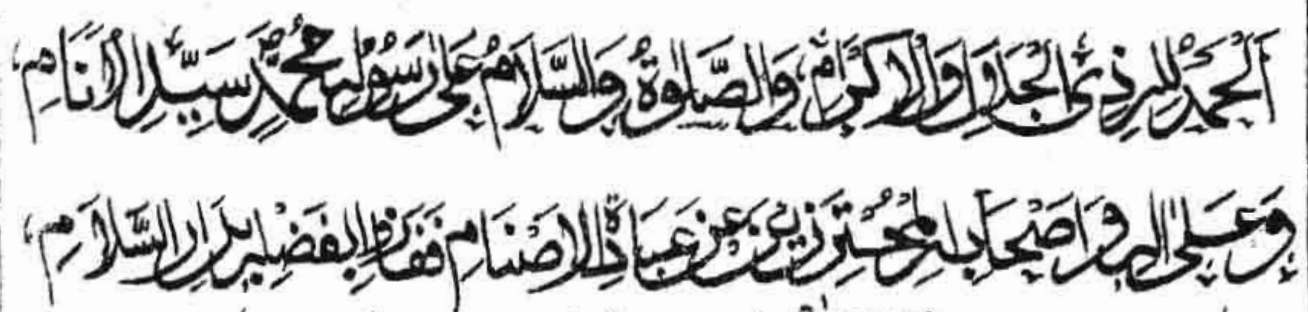 اَلْحَمْدُ لِلّٰهِ ذِی الْجَلَالِ وَالْاِکْرَامِ، وَالصَّلٰوةُ وَالسَّلَامُ عَلٰی رَسُوْلِهٖ مُحَمَّدٍ سَیِّدِ الْاَنَامِ،
وَعَلٰی اٰلِهٖ وَاَصْحَابِهِ الْمُحْتَرِزِیْنَ عَنْ عِبَادَةِ الْاَصْنَامِ فَفَازُوْا بِفَضْلِهٖ بِدَارِ السَّلَامِ،